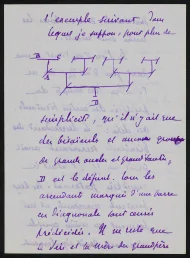 l'exemple suivant, dans
lequel je suppose pour plus de
B
D
simplicité, qu'il n'y ait que
des bisaïeuls et aucun
de grands oncles et grand'tantes,
D est le défunt. tous les
ascendants marqués d'une barre
en diagonale sont censés
prédécédés. Il ne reste que
et la mère du grand père